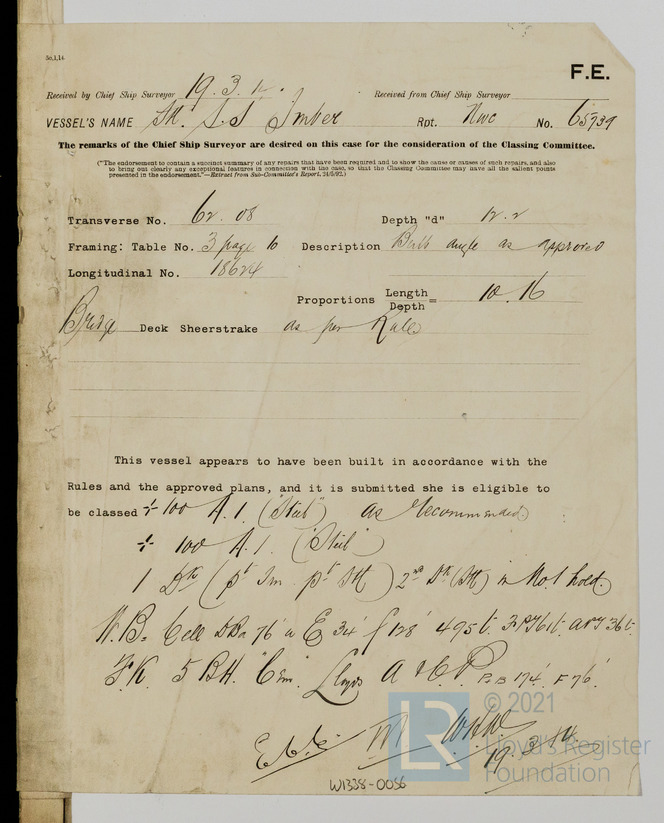 5c,1,14.
F.E.
Received by Chief Ship Surveyor 19.3.14. Received from Chief Ship Surveyor
VESSEL'S NAME St. S.S Imber Rpt. Nwc No. 65739
The remarks of the Chief Ship Surveyor are desired on this case for the consideration of the Classing Committee.
("The endorsement to contain a succinct summary of any repairs that have been required and to show the cause or causes of such repairs, and also
to bring out clearly any exceptional features in connection with the case, so that the Classing Committee may have all the salient points
presented in the endorsement."—Extract from Sub-Committee's Report, 24/5/02.)
Transverse No. 62.08 Depth "d" 12.2
Framing: Table No. 3 page 10 Description Bulb angle as approved
Longitudinal No. 18624
Proportions Length
Depth = 10.16
Bridge Deck Sheerstrake as per Rule
This vessel appears to have been built in accordance with the
Rules and the approved plans, and it is submitted she is eligible to
be classed + 100 A.1. (Steel) as Recommended.
+ 100 A.1. (Steel)
1 Dk (pt Im pt Stl) 2nd Dk (Stl) in No.1 hold.
W.B= Cell DBa 76' u E 34' f 128' 495t. FPT 61t. APT 36t.
F.K. 5 BH. Cem. Lloyds A & C.P. P.B 174' F 76'.
19.3.14.
W1338-0056
LR © 2021
Lloyd's Register
Foundation